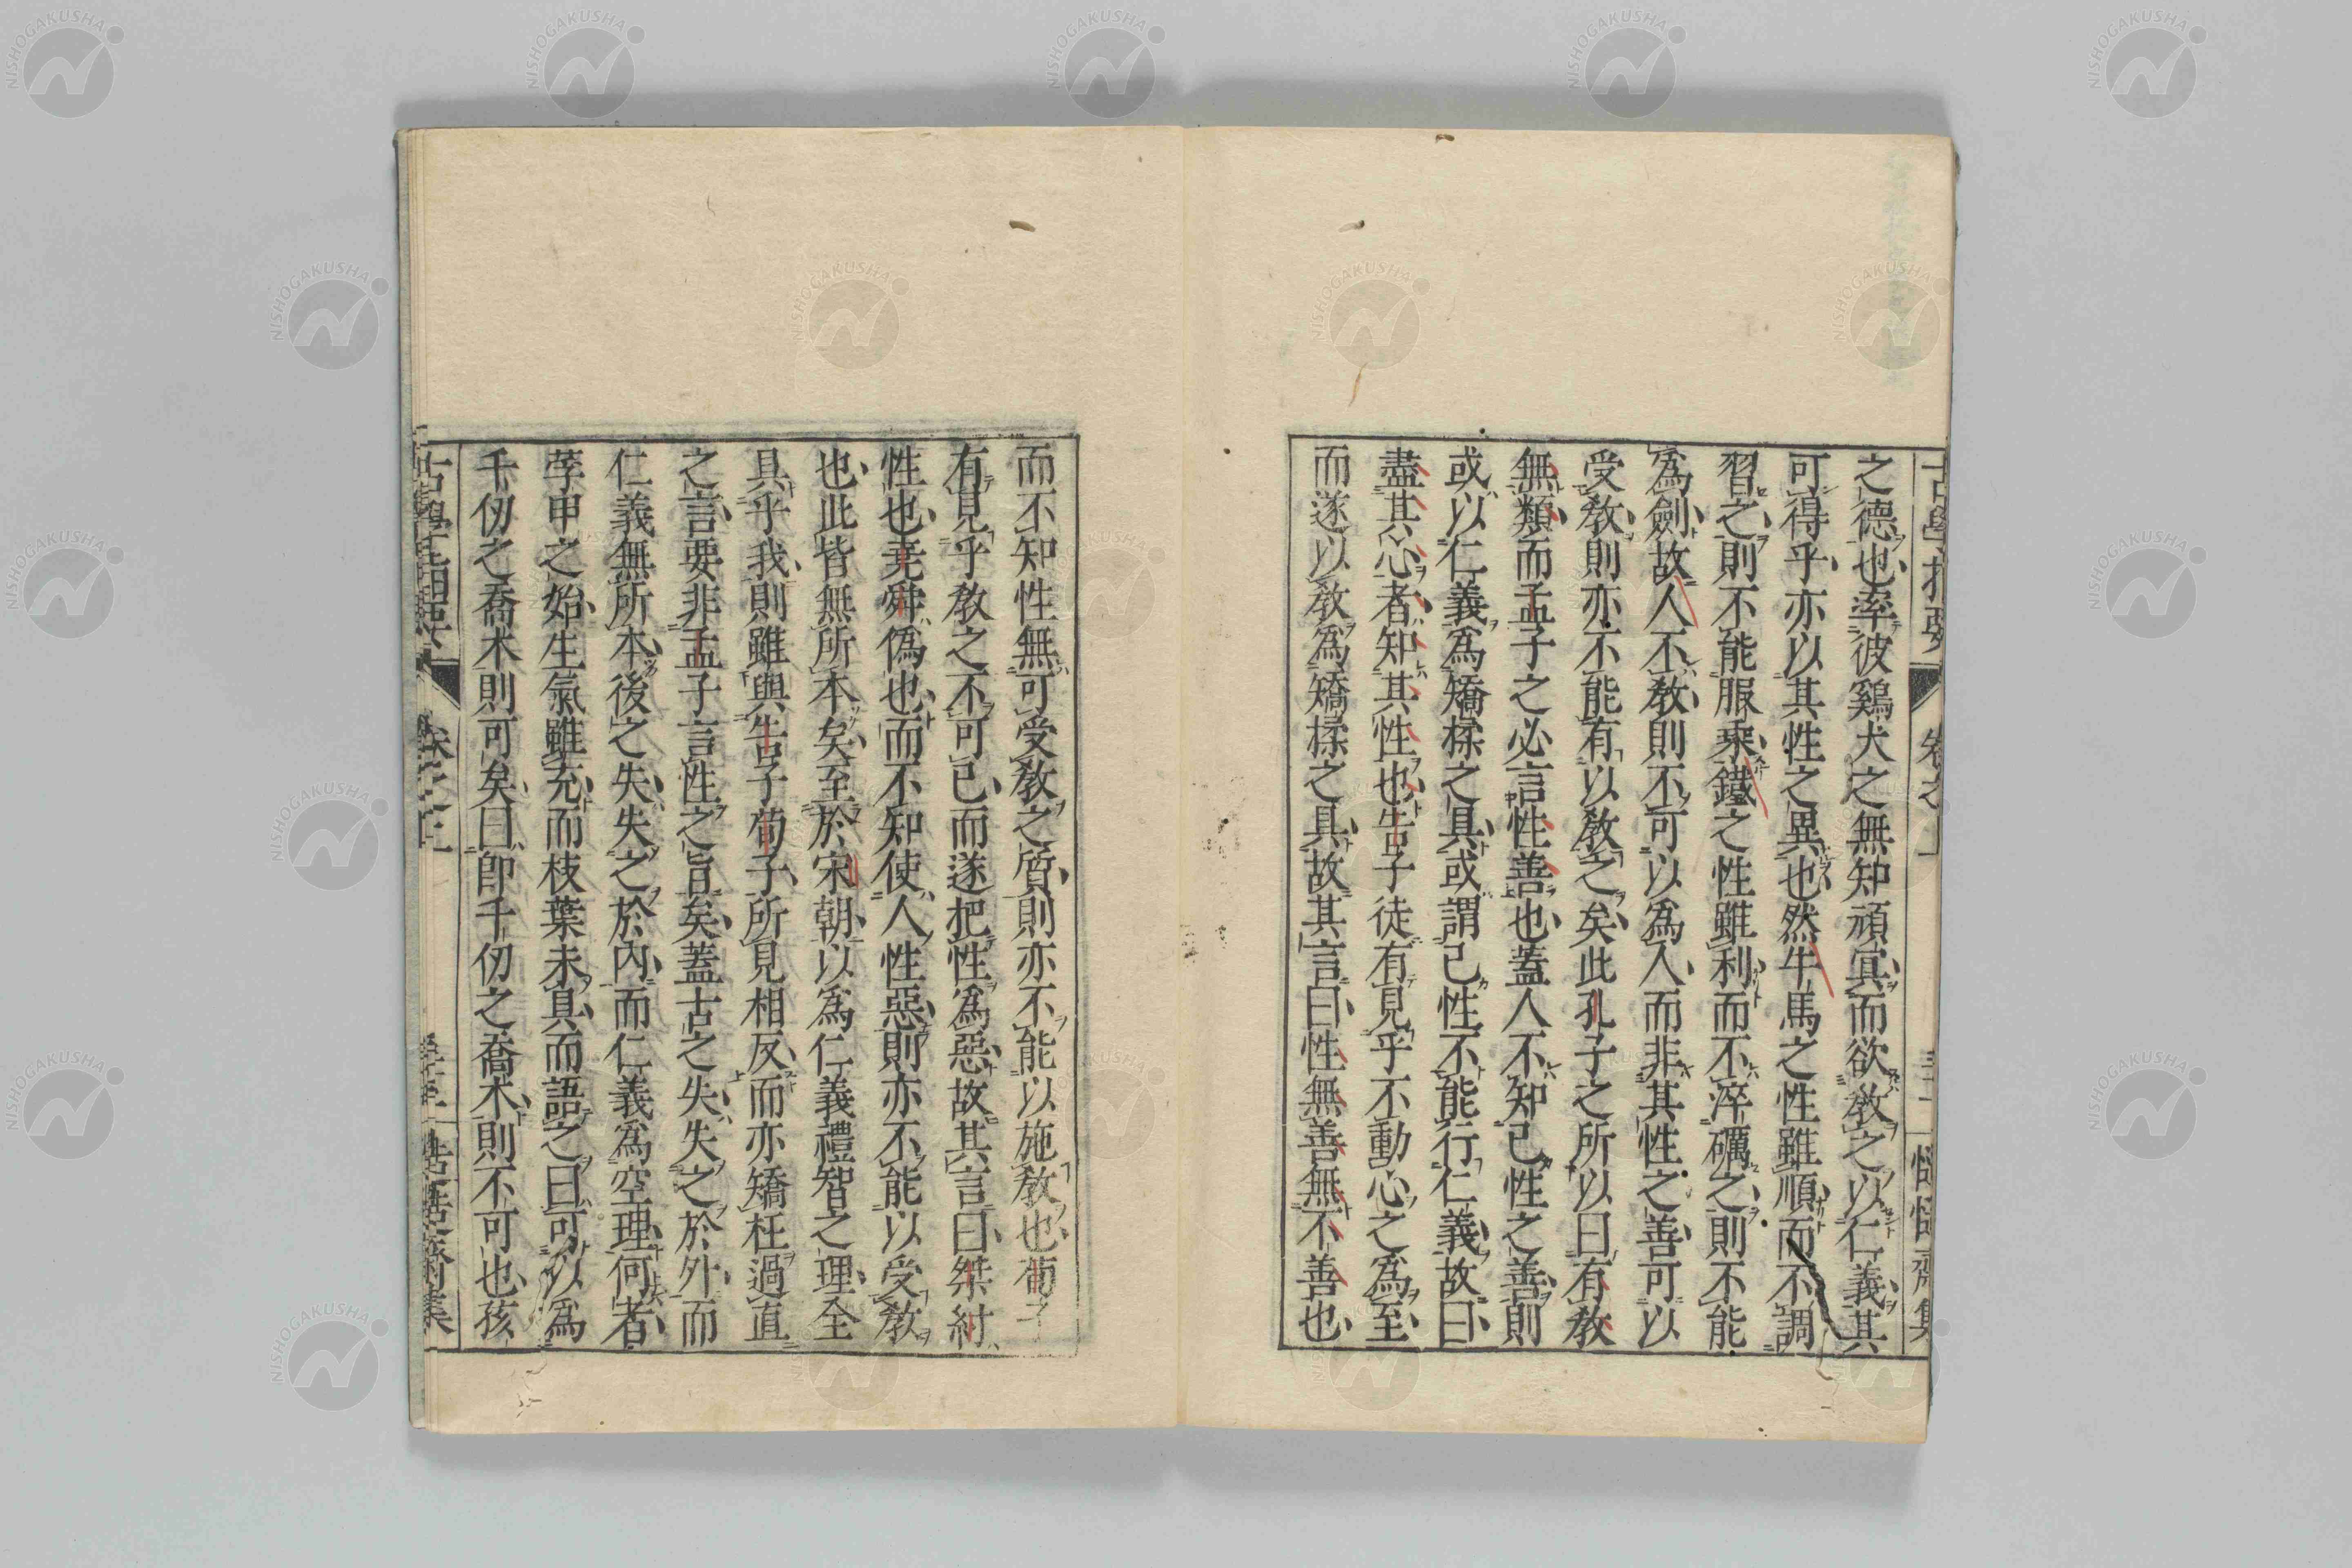 之德也率彼鷄犬之無知頑冥而欲敎之以仁義其
可得乎亦以其性之異也然牛馬之性雖順而不調
習之則不能服乘鐵之性雖利而不淬礪之則不能
爲劍故人不敎則不可以爲人而非其性之善可以
受敎則亦不能有以敎之矣此孔子之所以曰有敎
無類而孟子之必言性善也蓋人不知己性之善則
或以仁義爲矯揉之具或謂己性不能行仁義故曰
盡其心者知其性也告子徒有見乎不動心之爲至
而遂以敎爲矯揉之具故其言曰性無善無不善也
而不知性無可受敎之質則亦不能以施敎也荀子
有見乎敎之不可已而遂把性爲惡故其言曰桀紂
性也堯舜僞也而不知使人性惡則亦不能以受敎
也此皆無所本矣至於宋朝以爲仁義禮智之理全
具乎我則雖與告子荀子所見相反而亦矯枉過直
之言要非孟子言性之旨矣蓋古之失失之於外而
仁義無所本後之失失之於內而仁義爲空理何者
莩甲之始生氣雖充而枝葉未具而語之曰可以爲
千仞之喬木則可矣曰卽千仞之喬木則不可也孩
NISHOGAKUSHA